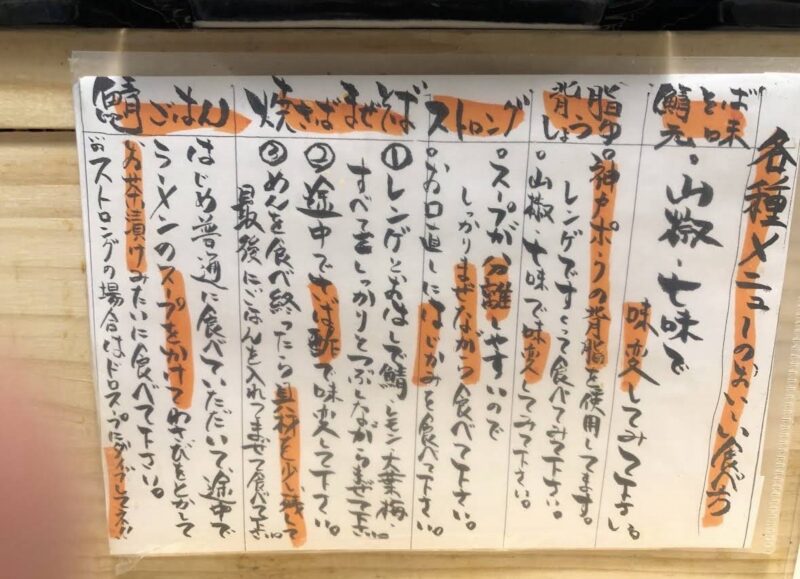 各種メニューのおいしい食べ方
鯖そば
元味
・山椒・七味で
味変してみて下さい。
背脂
しょうゆ
。神戸ポークの背脂を使用してます。
レンゲですくって食べてみて下さい。
。山椒・七味で味変してみて下さい。
ストロング
。スープが分離しやすいので
しっかりまぜながら食べて下さい。
。お口直しにはじかみを食べて下さい。
焼さばまぜそば
①レンゲとおはしで鯖、レモン・大葉・梅
すべてをしっかりとつぶしながらまぜて下さい
②途中でさば酢で味変して下さい。
③めんを食べ終ったら具材を少し残して
最後にごはんを入れてまぜて食べて下さい
鯖ごはん
はじめ普通に食べていただいて、途中で
ラーメンのスープをかけてわさびをとかして
お茶漬けみたいに食べて下さい。
ストロングの場合はドロスープにダイブして下さい!!